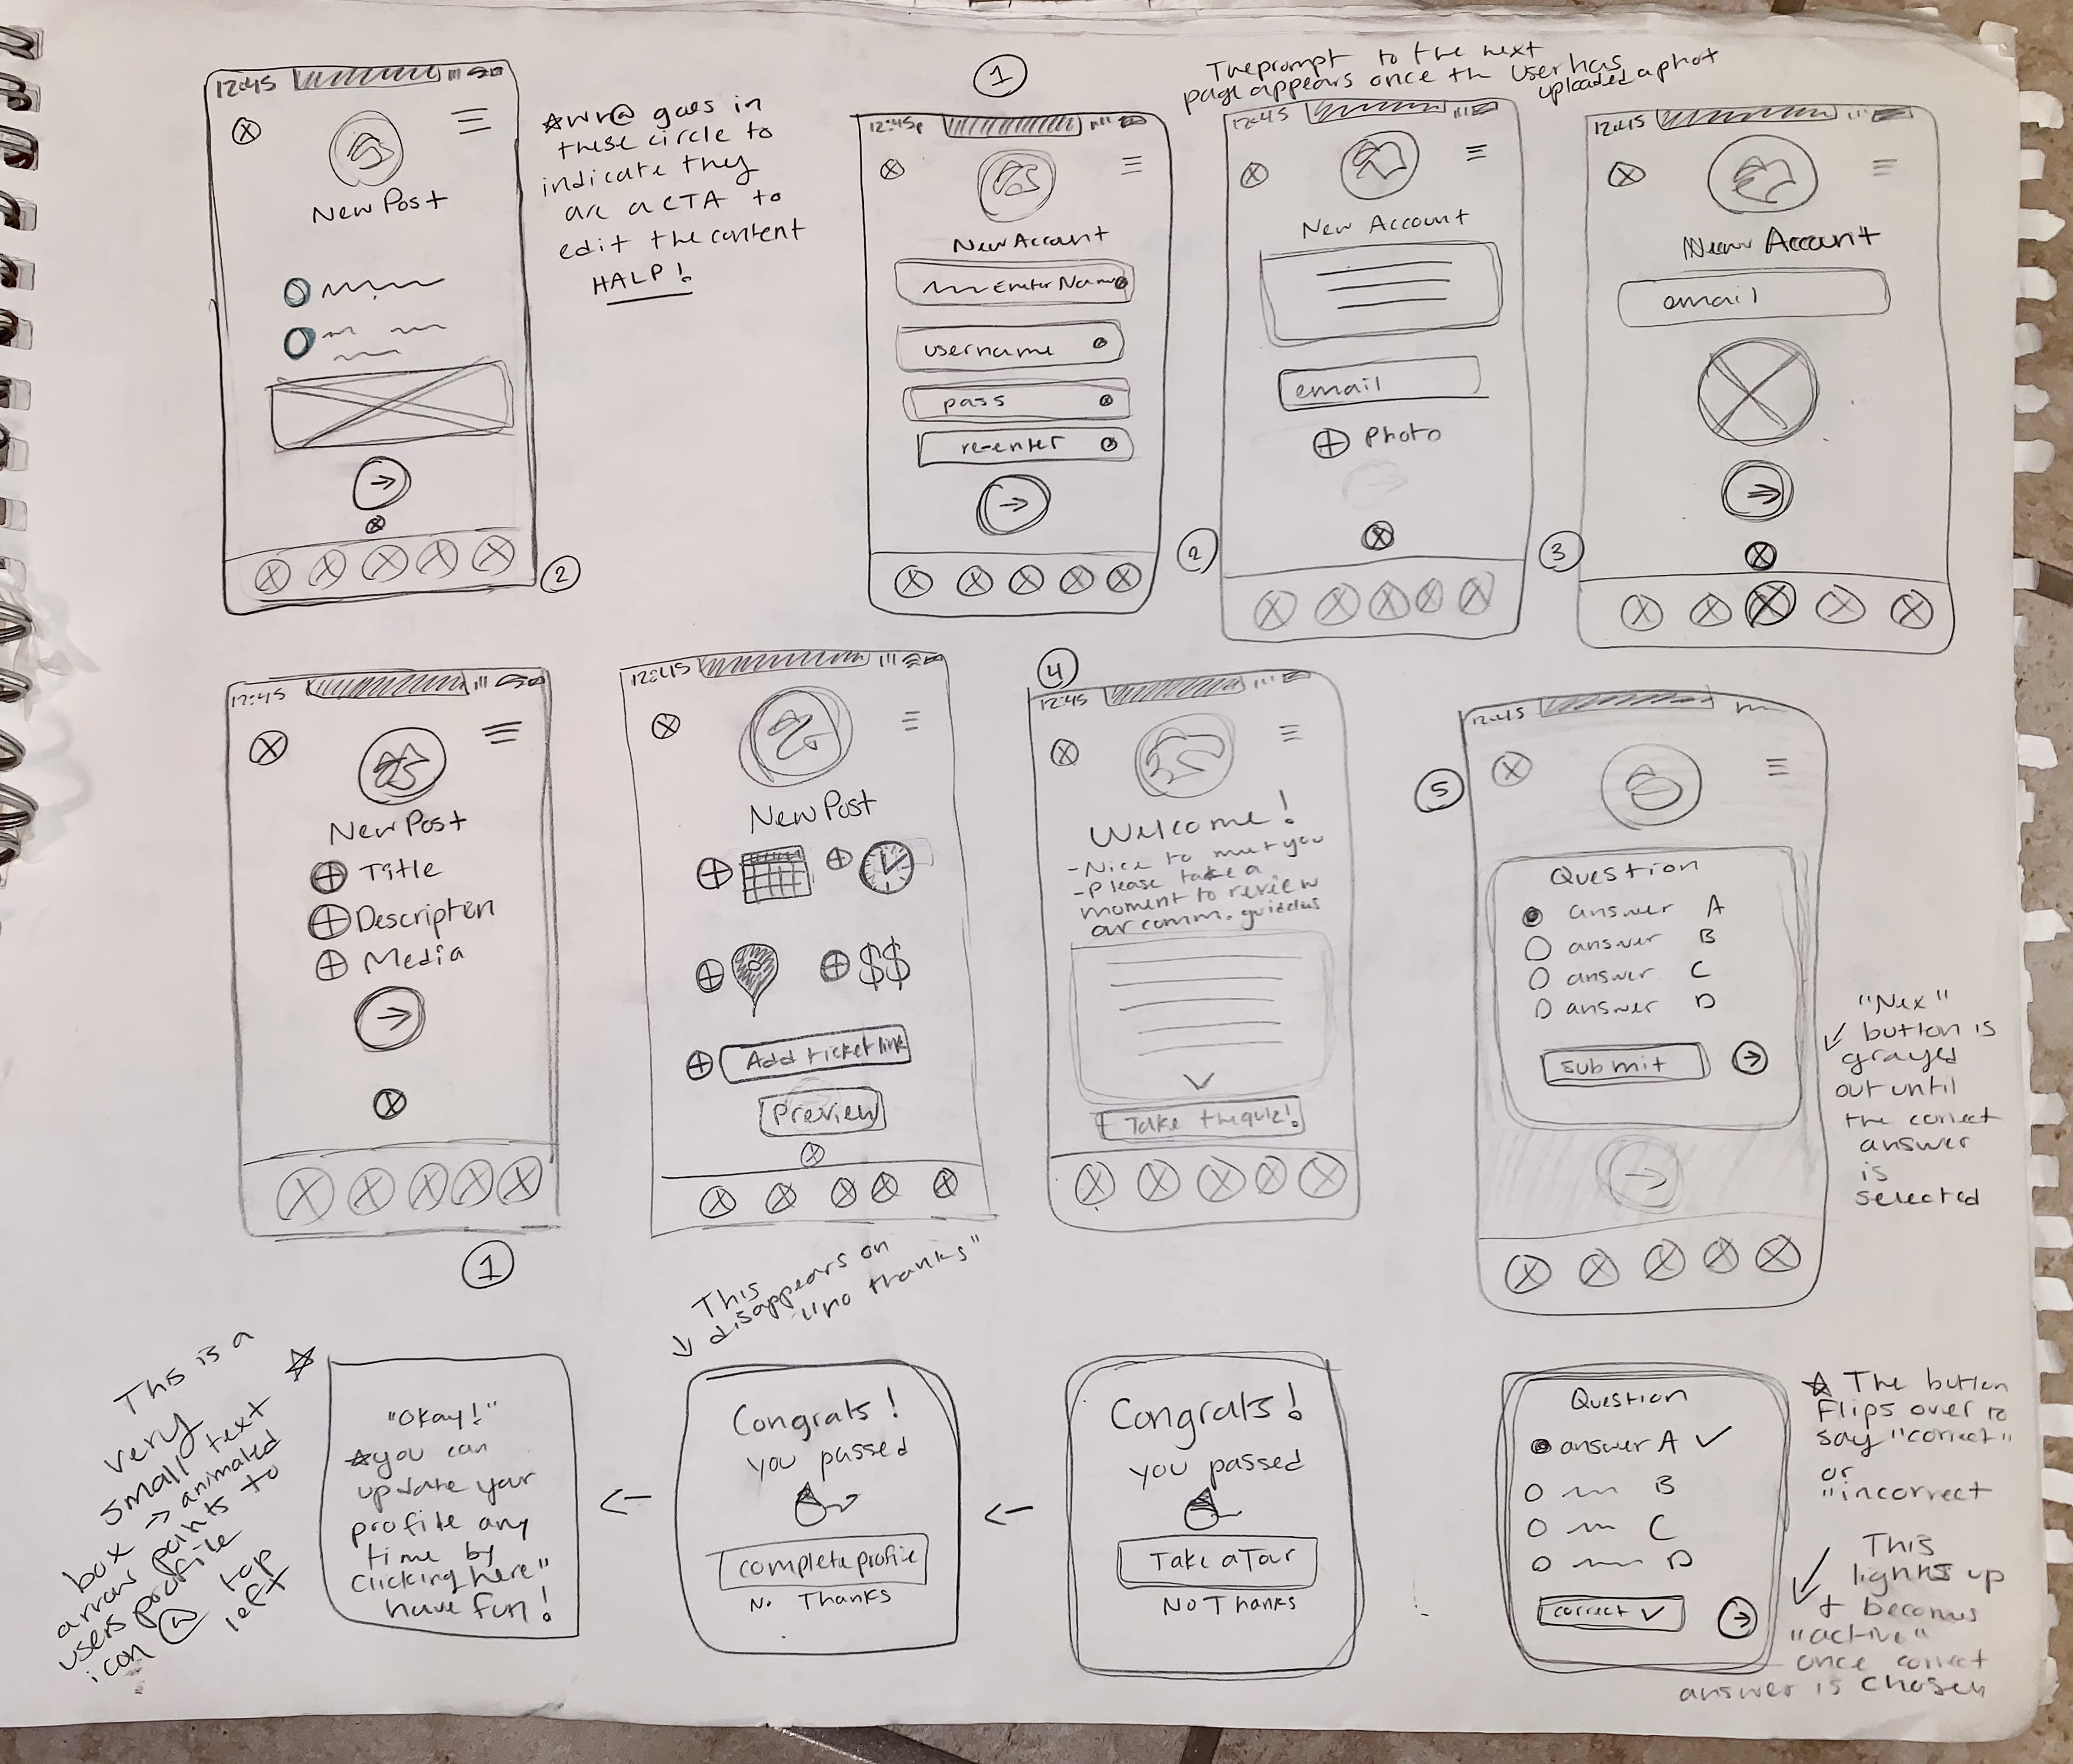 12:45
New Post
2
☆wr@ goes in
these circle to
indicate they
are a CTA to
edit the content
HALP!
1
12:45
New Account
Enter Name
username
pass
re-enter
The prompt to the next
page appears once the user has
uploaded a phot
12:45
New Account
email
Photo
2
12:45
New Account
email
3
12:45
New Post
Title
Description
Media
1
12:45
New Post
$$
Add ticket link
Preview
4
12:45
Welcome!
-Nice to meet you
-Please take a
moment to review
our comm.
Take the quiz!
5
12:45
Question
answer A
answer B
answer C
answer D
submit
"Nex"
button is
grayed
out until
the correct
answer
is
selected
This is a
very
small text
box → animated
arrow points to
users profile
icon top
left
"Okay!"
☆you can
update your
profile any
time by
clicking here"
have fun!
This
disappears on
"no thanks"
Congrats!
you passed
complete profile
No Thanks
Congrats!
you passed
Take a Tour
No Thanks
Question
answer A ✓
B
C
D
correct ✓
☆ The button
flips over to
say "correct"
or
"incorrect
This
lights up
+ becomes
"active"
once correct
answer is chosen